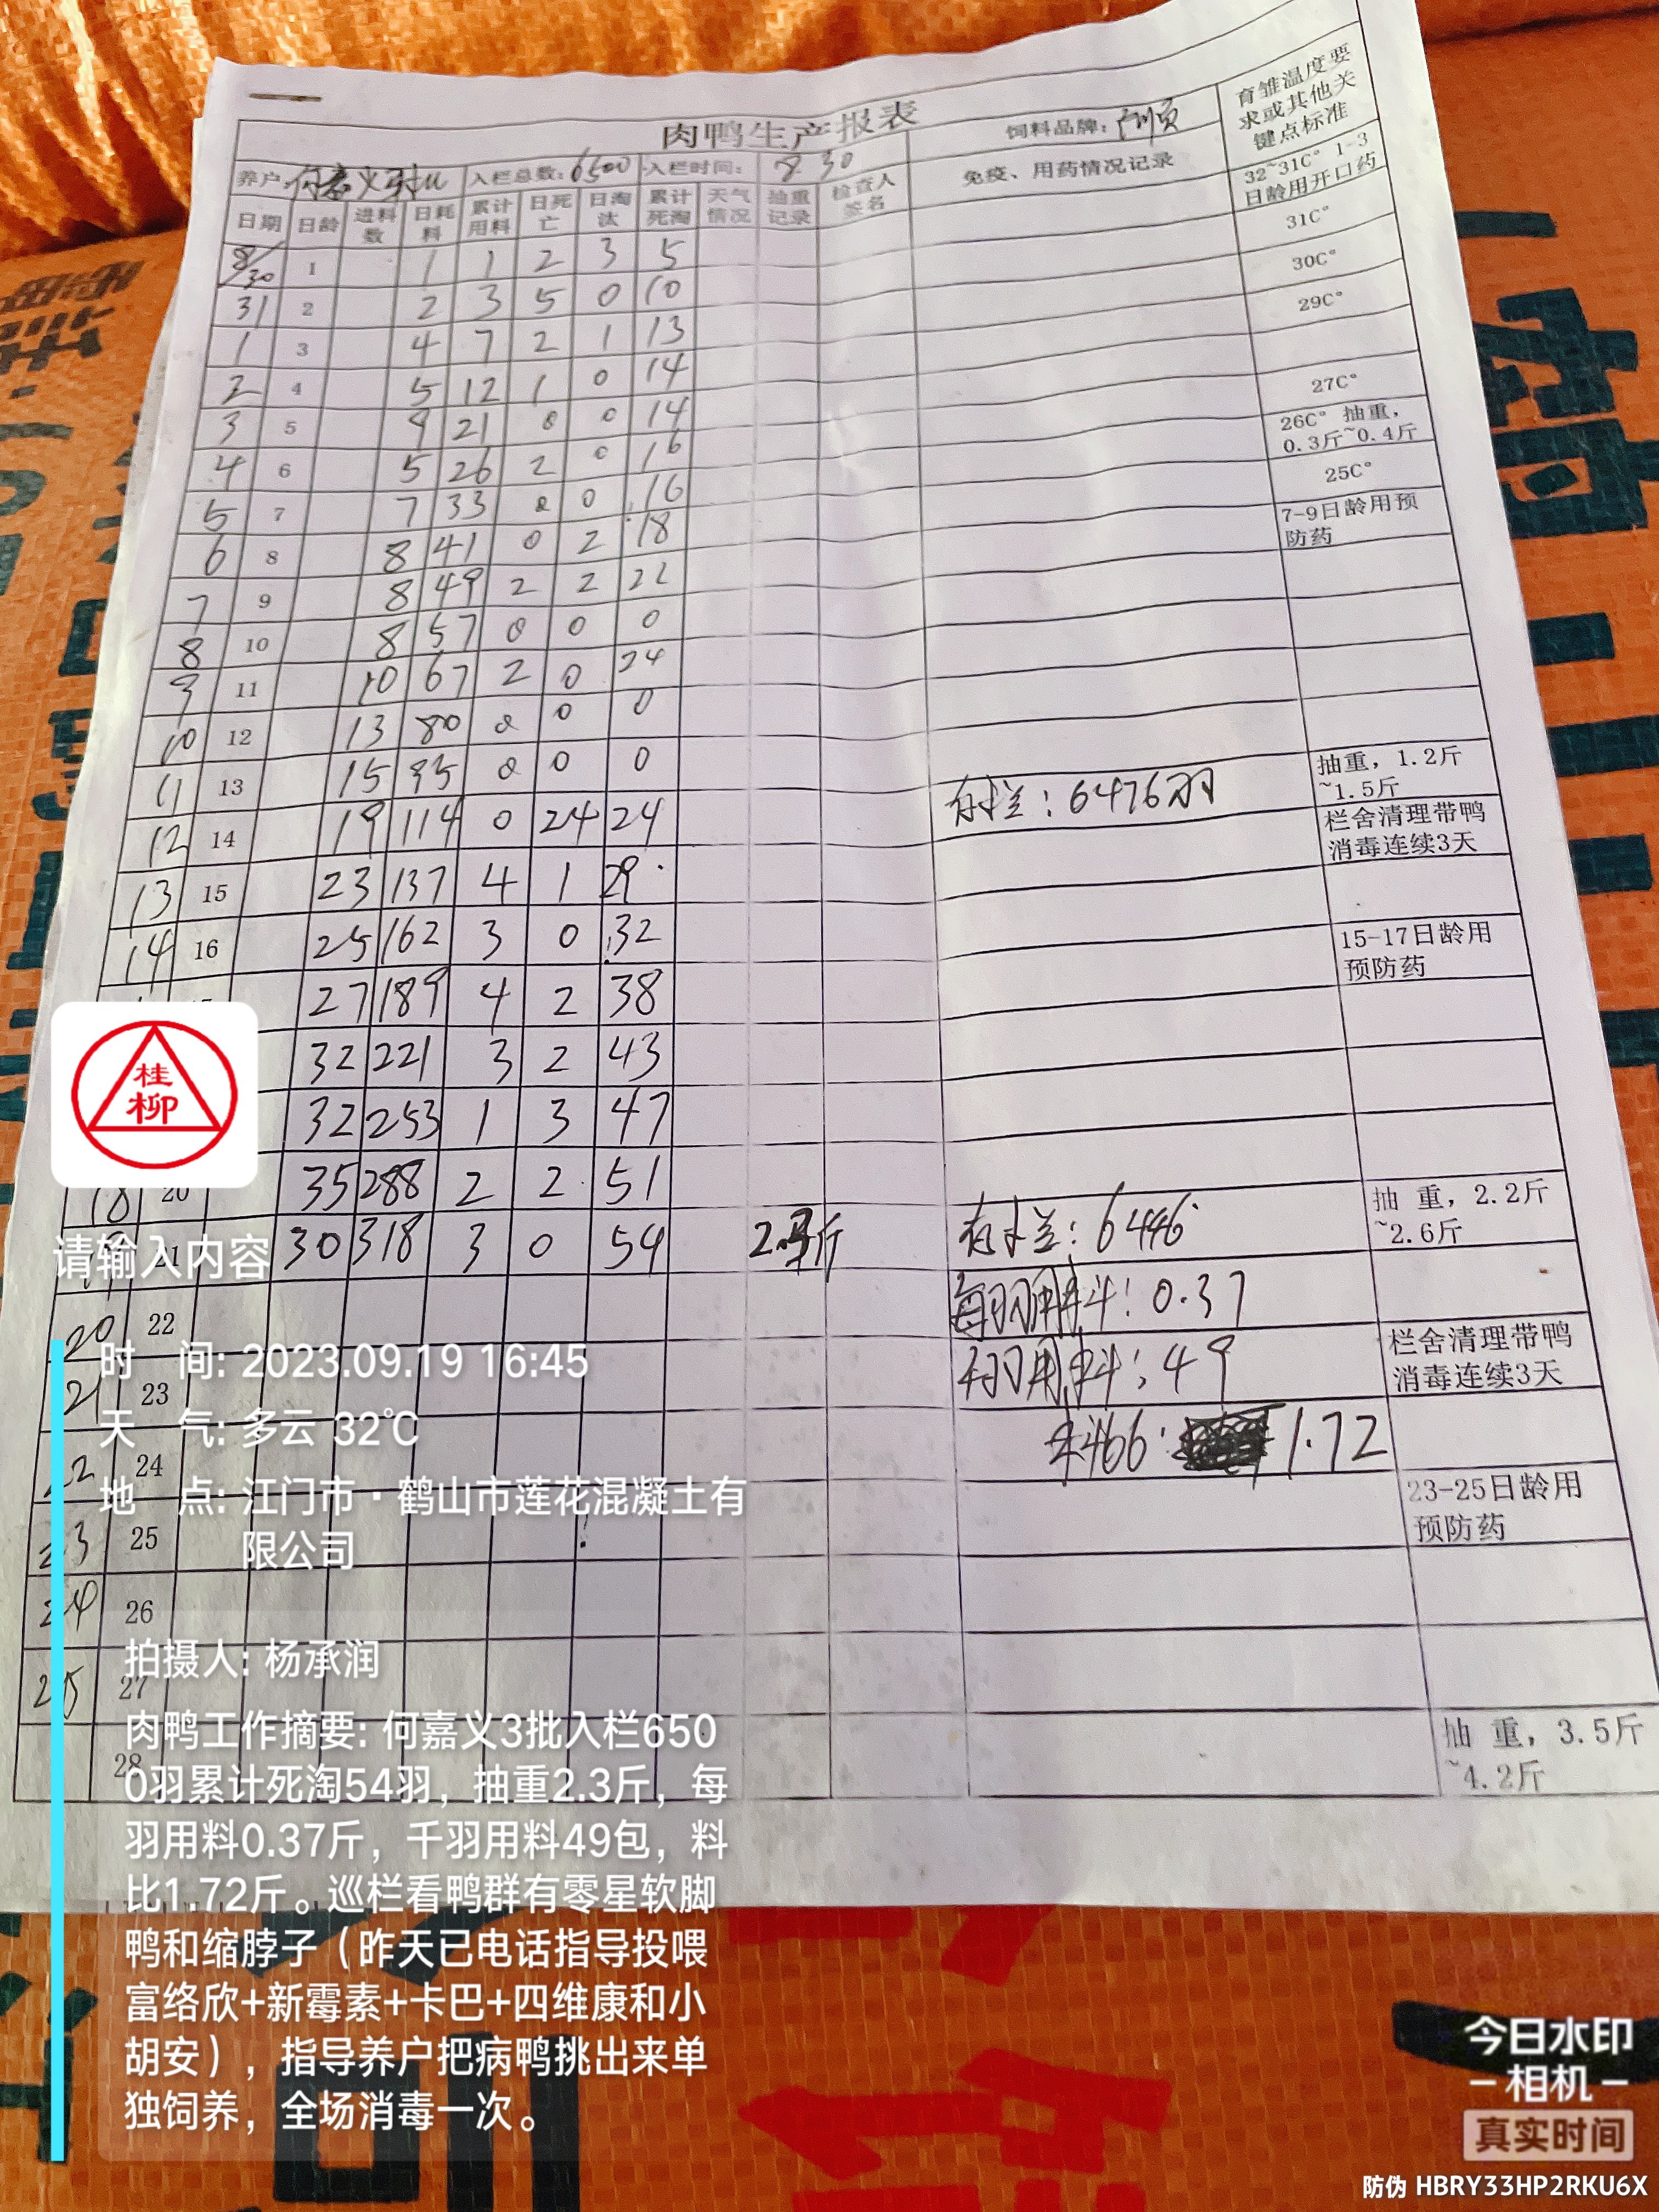 肉鸭生产报表
养户: 何嘉义3批 入栏总数: 6500 入栏时间: 8 30 饲料品牌:
育雏温度要求或其他关键点标准
日期 日龄 进料数 日耗料 累计用料 日死亡 日淘汰 累计死淘 天气情况 抽重记录 检查人签名 免疫、用药情况记录
32~31C° 1-3日龄用开口药
8/30 1 1 1 2 3 5 31C°
31 2 2 3 5 0 10 30C°
1 3 4 7 2 1 13 29C°
2 4 5 12 1 0 14
3 5 9 21 0 0 14 27C°
4 6 5 26 2 0 16 26C° 抽重, 0.3斤~0.4斤
5 7 7 33 0 0 16 25C°
6 8 8 41 0 2 18 7-9日龄用预防药
7 9 8 49 2 2 22
8 10 8 57 0 0 0
9 11 10 67 2 0 24
10 12 13 80 0 0 0
11 13 15 95 0 0 0
12 14 19 114 0 24 24 存栏: 6476羽 抽重, 1.2斤~1.5斤
13 15 23 137 4 1 29 栏舍清理带鸭消毒连续3天
14 16 25 162 3 0 32
15-17日龄用预防药
27 189 4 2 38
32 221 3 2 43
32 253 1 3 47
18 20 35 288 2 2 51
21 30 318 3 0 54 2.3斤 存栏: 6446 抽 重, 2.2斤~2.6斤
20 22 每羽用料: 0.37
21 23 千羽用料: 49 栏舍清理带鸭消毒连续3天
22 24 料比: 1.72
23 25 23-25日龄用预防药
24 26
25 27
28 抽 重, 3.5斤~4.2斤
桂
柳
请输入内容
时 间: 2023.09.19 16:45
天 气: 多云 32℃
地 点: 江门市·鹤山市莲花混凝土有
限公司
拍摄人: 杨承润
肉鸭工作摘要: 何嘉义3批入栏650
0羽累计死淘54羽，抽重2.3斤，每
羽用料0.37斤，千羽用料49包，料
比1.72斤。巡栏看鸭群有零星软脚
鸭和缩脖子（昨天已电话指导投喂
富络欣+新霉素+卡巴+四维康和小
胡安），指导养户把病鸭挑出来单
独饲养，全场消毒一次。
今日水印
相机
真实时间
防伪 HBRY33HP2RKU6X